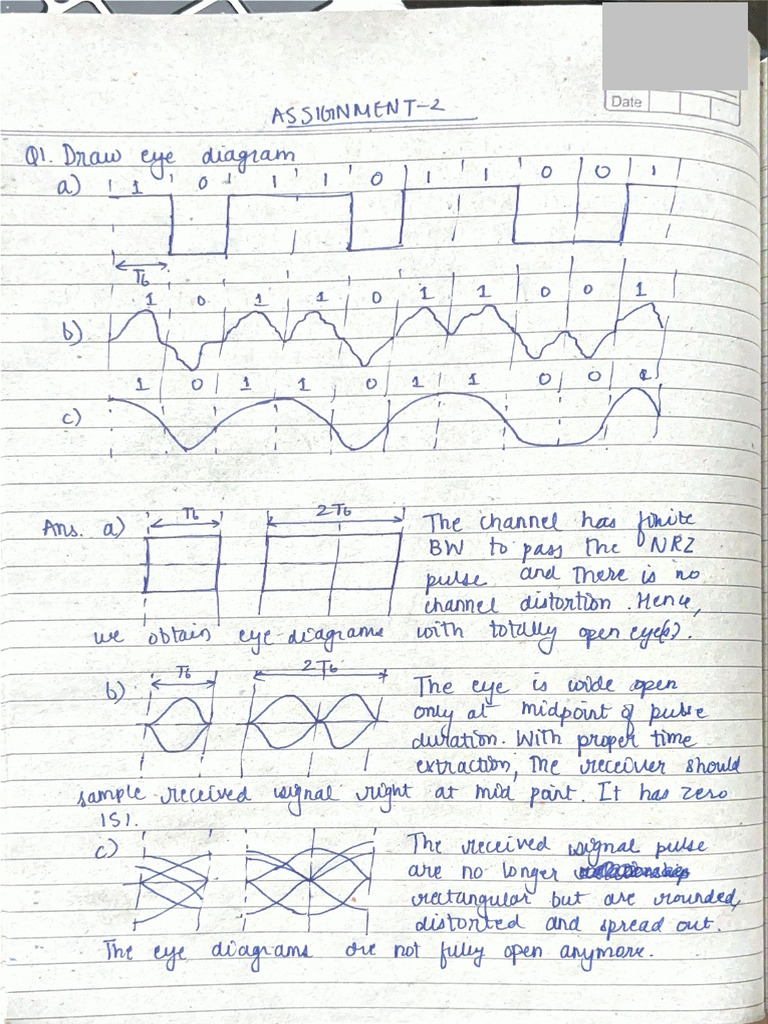 Date
ASSIGNMENT-2
Q1. Draw eye diagram
a) 1 0 1 1 0 1 1 0 0 1
Tb
1 0 1 1 0 1 1 0 0 1
b)
1 0 1 1 0 1 1 0 0 1
c)
Ans. a) Tb 2Tb The channel has finite
BW to pass the NRZ
pulse and there is no
channel distortion. Hence,
we obtain eye diagrams with totally open eye(s).
b) Tb 2Tb The eye is wide open
only at midpoint of pulse
duration. With proper time
extraction, the receiver should
sample received signal right at mid point. It has zero
ISI.
c) The received signal pulse
are no longer
rectangular but are rounded,
distorted and spread out.
The eye diagrams are not fully open anymore.